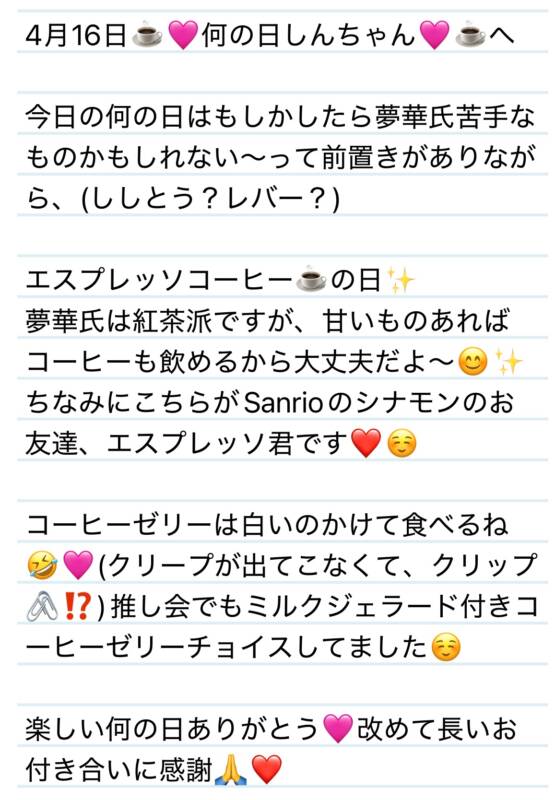 4月16日☕️🩷何の日しんちゃん🩷☕️へ
今日の何の日はもしかしたら夢華氏苦手な
ものかもしれない〜って前置きがありなが
ら、(ししとう？レバー？)
エスプレッソコーヒー☕️の日✨
夢華氏は紅茶派ですが、甘いものあれば
コーヒーも飲めるから大丈夫だよ〜😊✨
ちなみにこちらがSanrioのシナモンのお
友達、エスプレッソ君です❤️☺️
コーヒーゼリーは白いのかけて食べるね
🤣🩷(クリープが出てこなくて、クリップ
🖇️⁉️)推し会でもミルクジェラード付きコ
ーヒーゼリーチョイスしてました☺️
楽しい何の日ありがとう🩷改めて長いお
付き合いに感謝🙏❤️